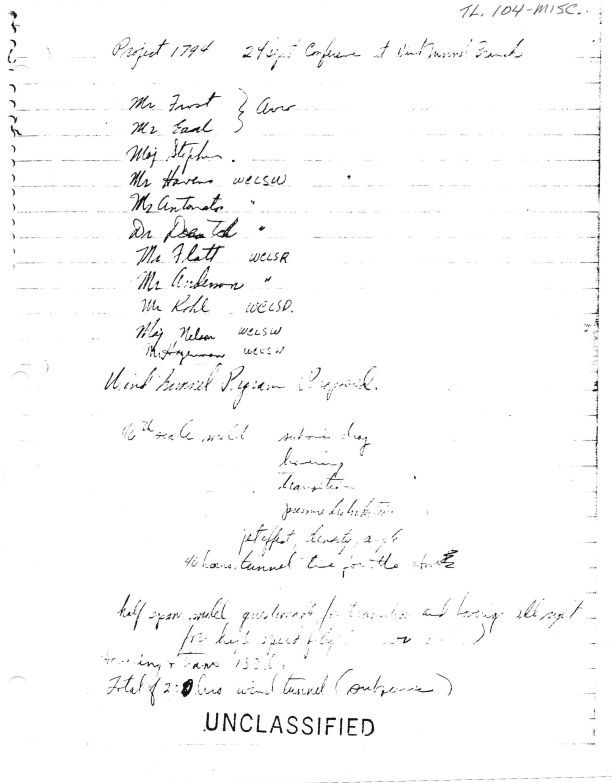 TL. 104-MISC.
Project 1794 24 Sept Conference at Wind Tunnel Branch
Mr Frost } Avro
Mr Earl
Maj Stephen .
Mr Havens WCLSW
Mr Antonatos "
Dr "
Mr Flatt WCLSR
Mr Anderson "
Mr Kohl WCLSD.
Maj Nelson WCLSW
Mr Hagerman WCLSW
Wind tunnel Program Proposal.
scale model subsonic drag
hovering
transition
pressure distribution
jet effect, density, angle
40 hours tunnel time for the
half span model questionable for transition and hovering all right
for high speed flight
Total of hrs wind tunnel (subsonic)
UNCLASSIFIED